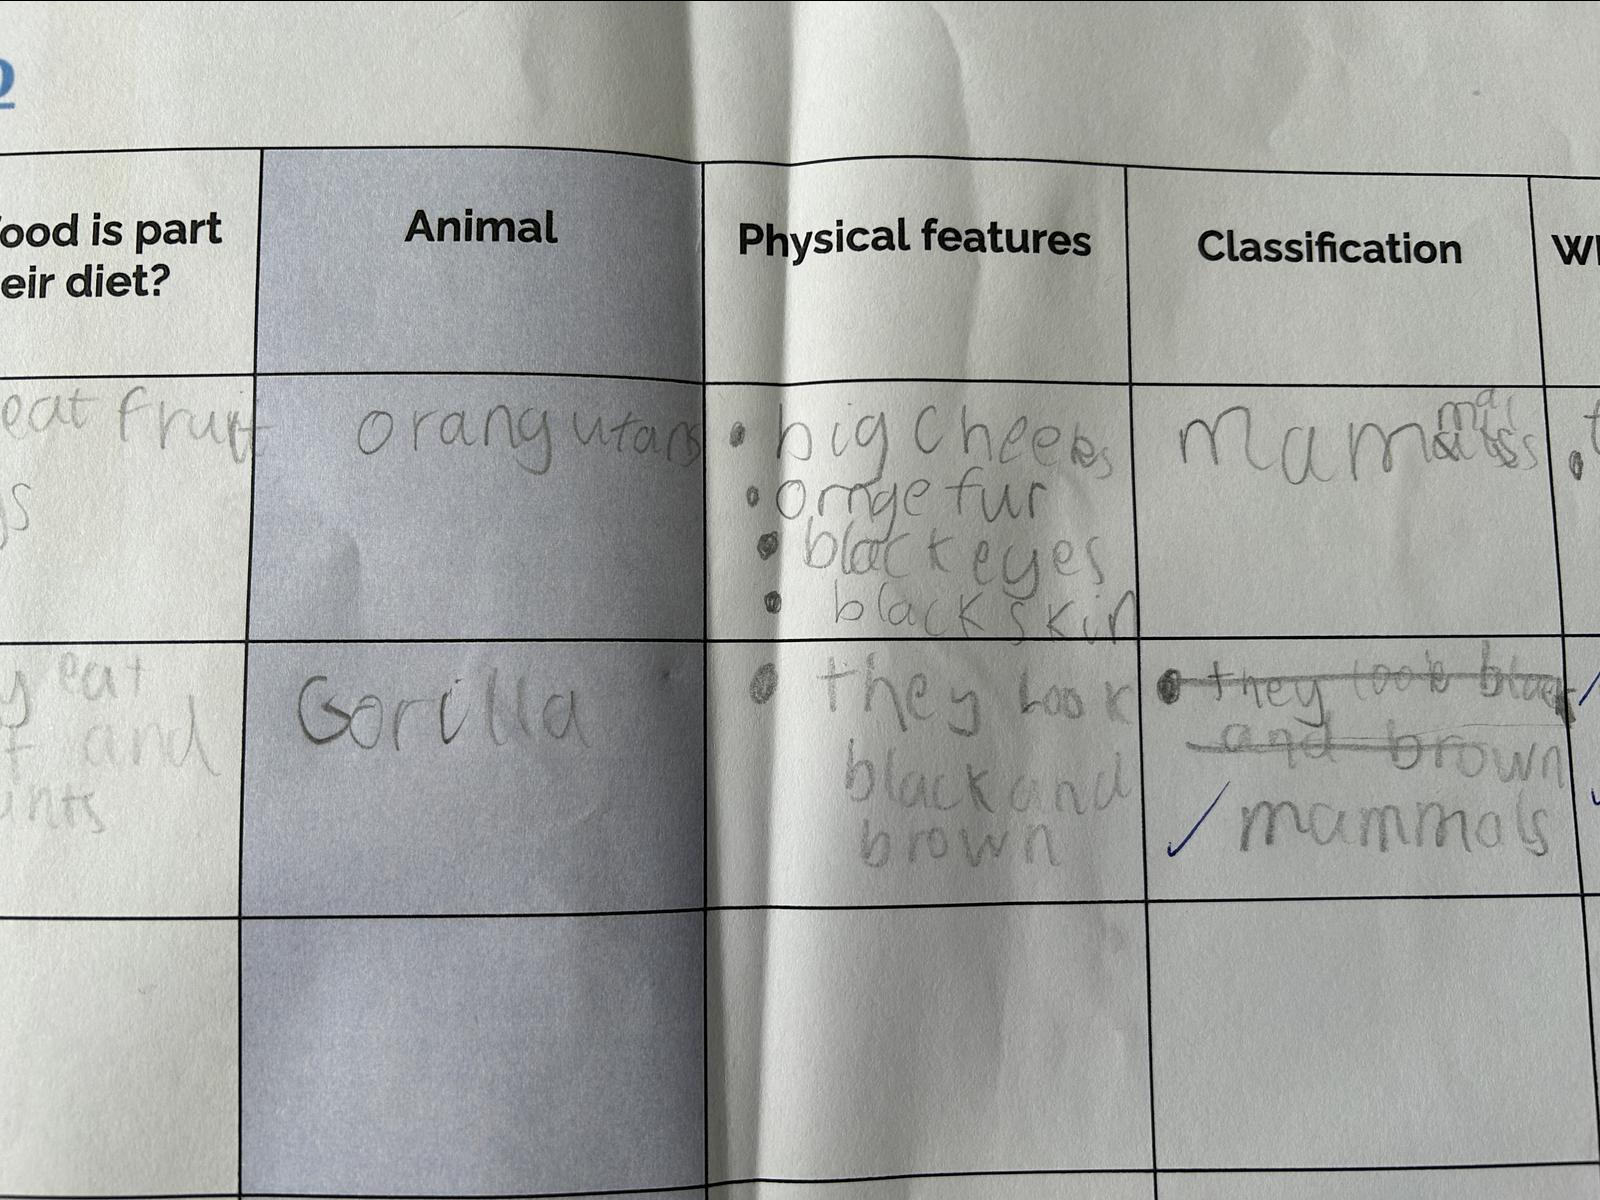 ood is part
eir diet?
Animal
Physical features
Classification
eat fruit
orangutans
• big cheeks
• ornge fur
• black eyes
• black skin
mammals
y eat
and
Gorilla
• they look
black and
brown
• they look black
and brown
✓ mammals